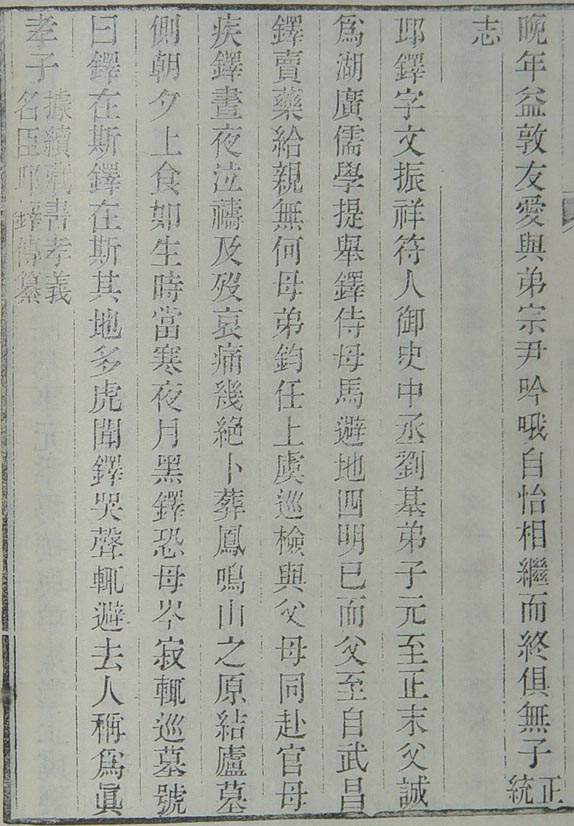 晚年益敦友愛與弟宗尹吟哦自怡相繼而終俱無子正統
志
邱鐸字文振祥符人御史中丞劉基弟子元至正末父誠
爲湖廣儒學提舉鐸侍母馬避地四明已而父至自武昌
鐸賣藥給親無何母弟鈞任上虞巡檢與父母同赴官母
疾鐸晝夜泣禱及歿哀痛幾絕卜葬鳳鳴山之原結廬墓
側朝夕上食如生時當寒夜月黑鐸恐母岑寂輒巡墓號
曰鐸在斯鐸在斯其地多虎聞鐸哭聲輒避去人稱爲眞
孝子據續藏書孝義名臣邱鐸傳纂